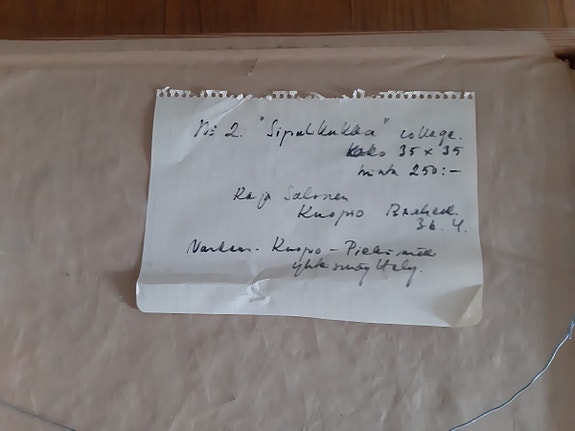 No 2. "Sipulikukka" collage.
Koko 35 x 35
hinta 250:-
Raija Salonen
Kuopio
36. 4.
Varkaus - Kuopio - Pieksämäki